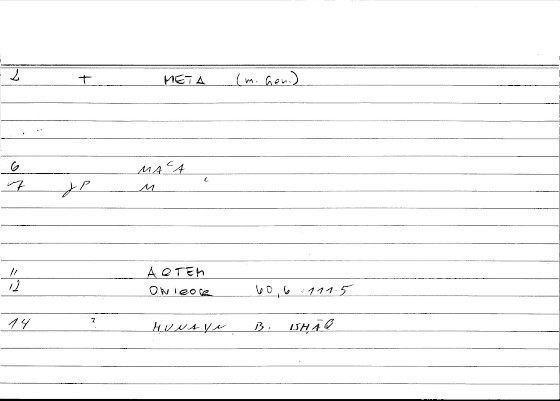 2 + META (m. Gen.)
6 MACA
7 JP M
11 AQTEM
12 60,6-111.5
14 ? HUNAYN B. ISHĀQ